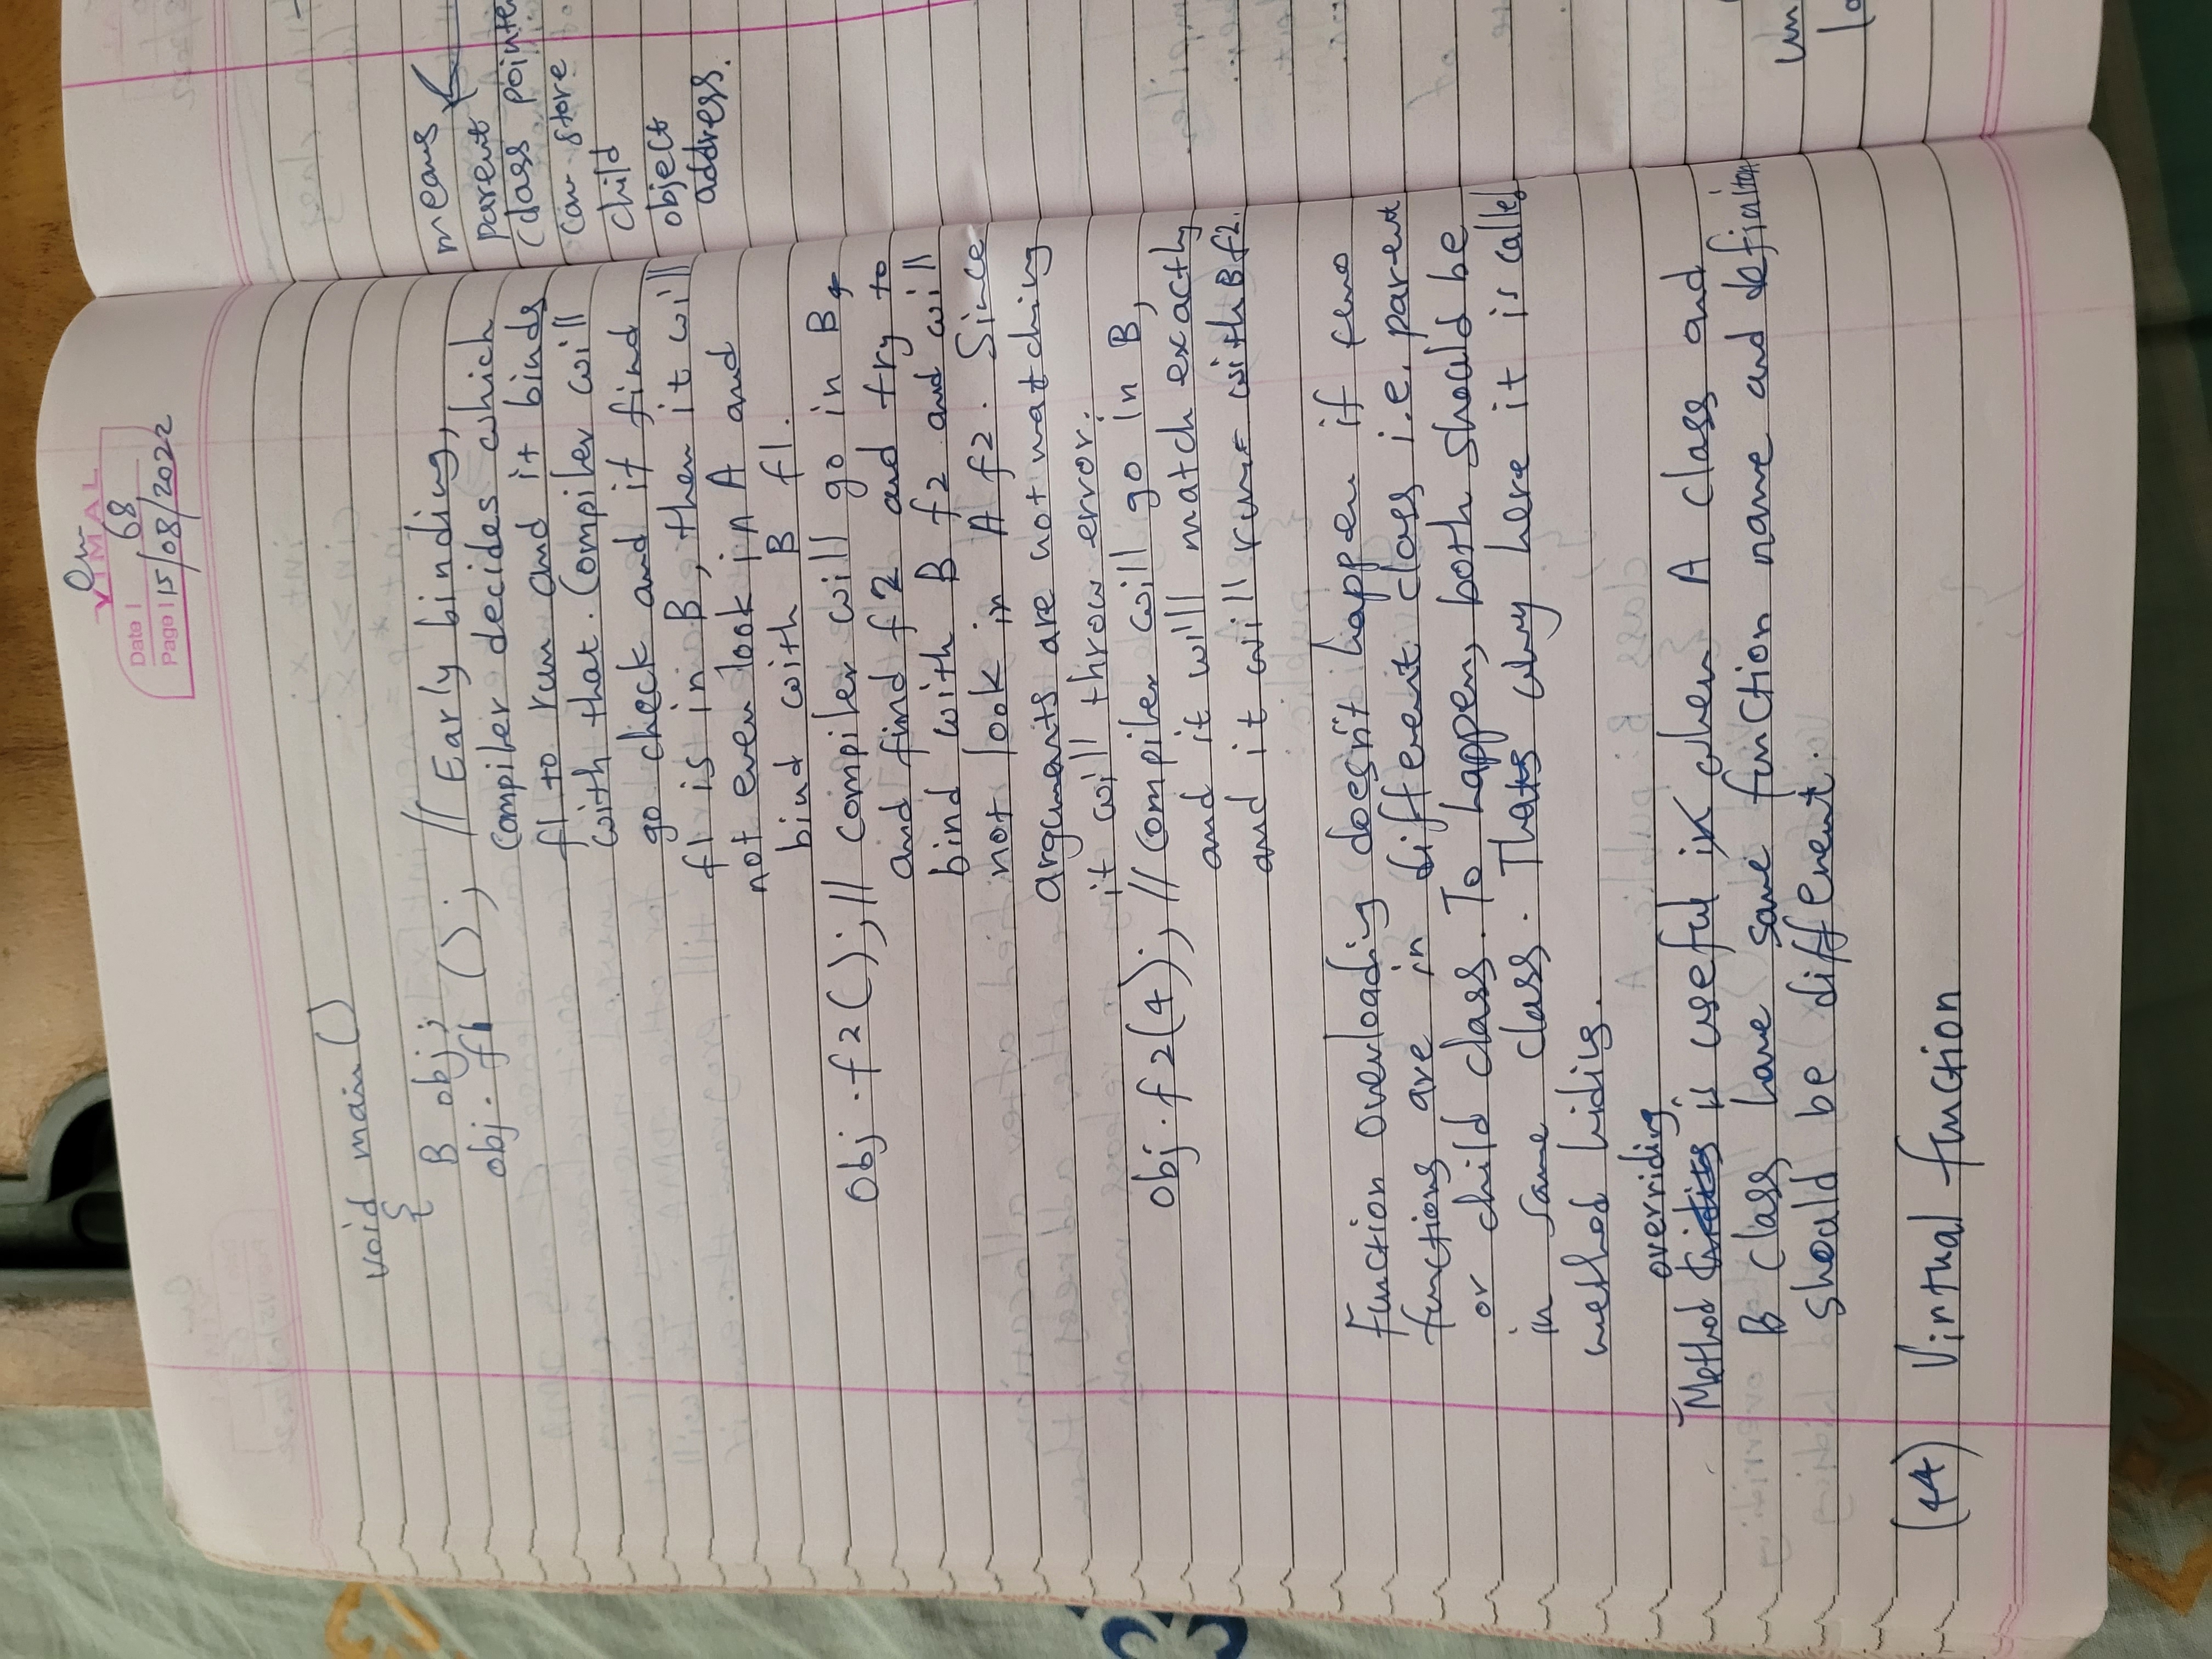 Om
VIMAL
Date 68
Page 15/08/2022
void main ()
{
B obj;
obj. f1 (); // Early binding,
compiler decides which
f1 to run and it binds
with that. Compiler will
go check and if find
f1 is in B, then it will
not even look in A and
bind with B f1.
Obj .f2(); // compiler will go in B
and find f2 and try to
bind with B f2 and will
not look in A f2. Since
arguments are not matching
it will throw error.
Obj. f2(4); // Compiler will go in B,
and it will match exactly
and it will run with B f2.
Function overloading doesn't happen if
functions are in different class i.e. parent
or child class. To happen, both should be
in same class. Thats why here it is called
method hiding.
overriding
Method is useful when A class and
B class have same function name and definiton
should be different.
(44) Virtual function
means
parent
class pointe
can store
child
object
address.
un